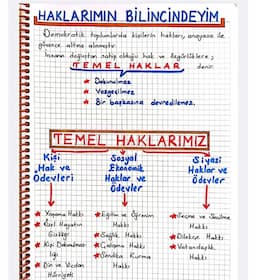 HAKLARIMIN BİLİNCİNDEYİM
Demokratik toplumlarda kişilerin hakları, anayasa ile
güvence altına alınmıştır.
İnsanın doğuştan sahip olduğu hak ve özgürlüklere;
TEMEL HAKLAR denir.
* Dokunulmaz
* Vazgeçilmez
* Bir başkasına devredilemez.
TEMEL HAKLARIMIZ
Kişi Hak ve Ödevleri
* Yaşama Hakkı
* Özel Hayatın Gizliliği
* Kişi Dokunulmazlığı
* Din ve Vicdan Hürriyeti
Sosyal Ekonomik Haklar ve Ödevler
* Eğitim ve Öğrenim Hakkı
* Sağlık Hakkı
* Çalışma Hakkı
* Sendika Kurma Hakkı
Siyasi Haklar ve Ödevler
* Seçme ve Seçilme Hakkı
* Dilekçe Hakkı
* Vatandaşlık Hakkı